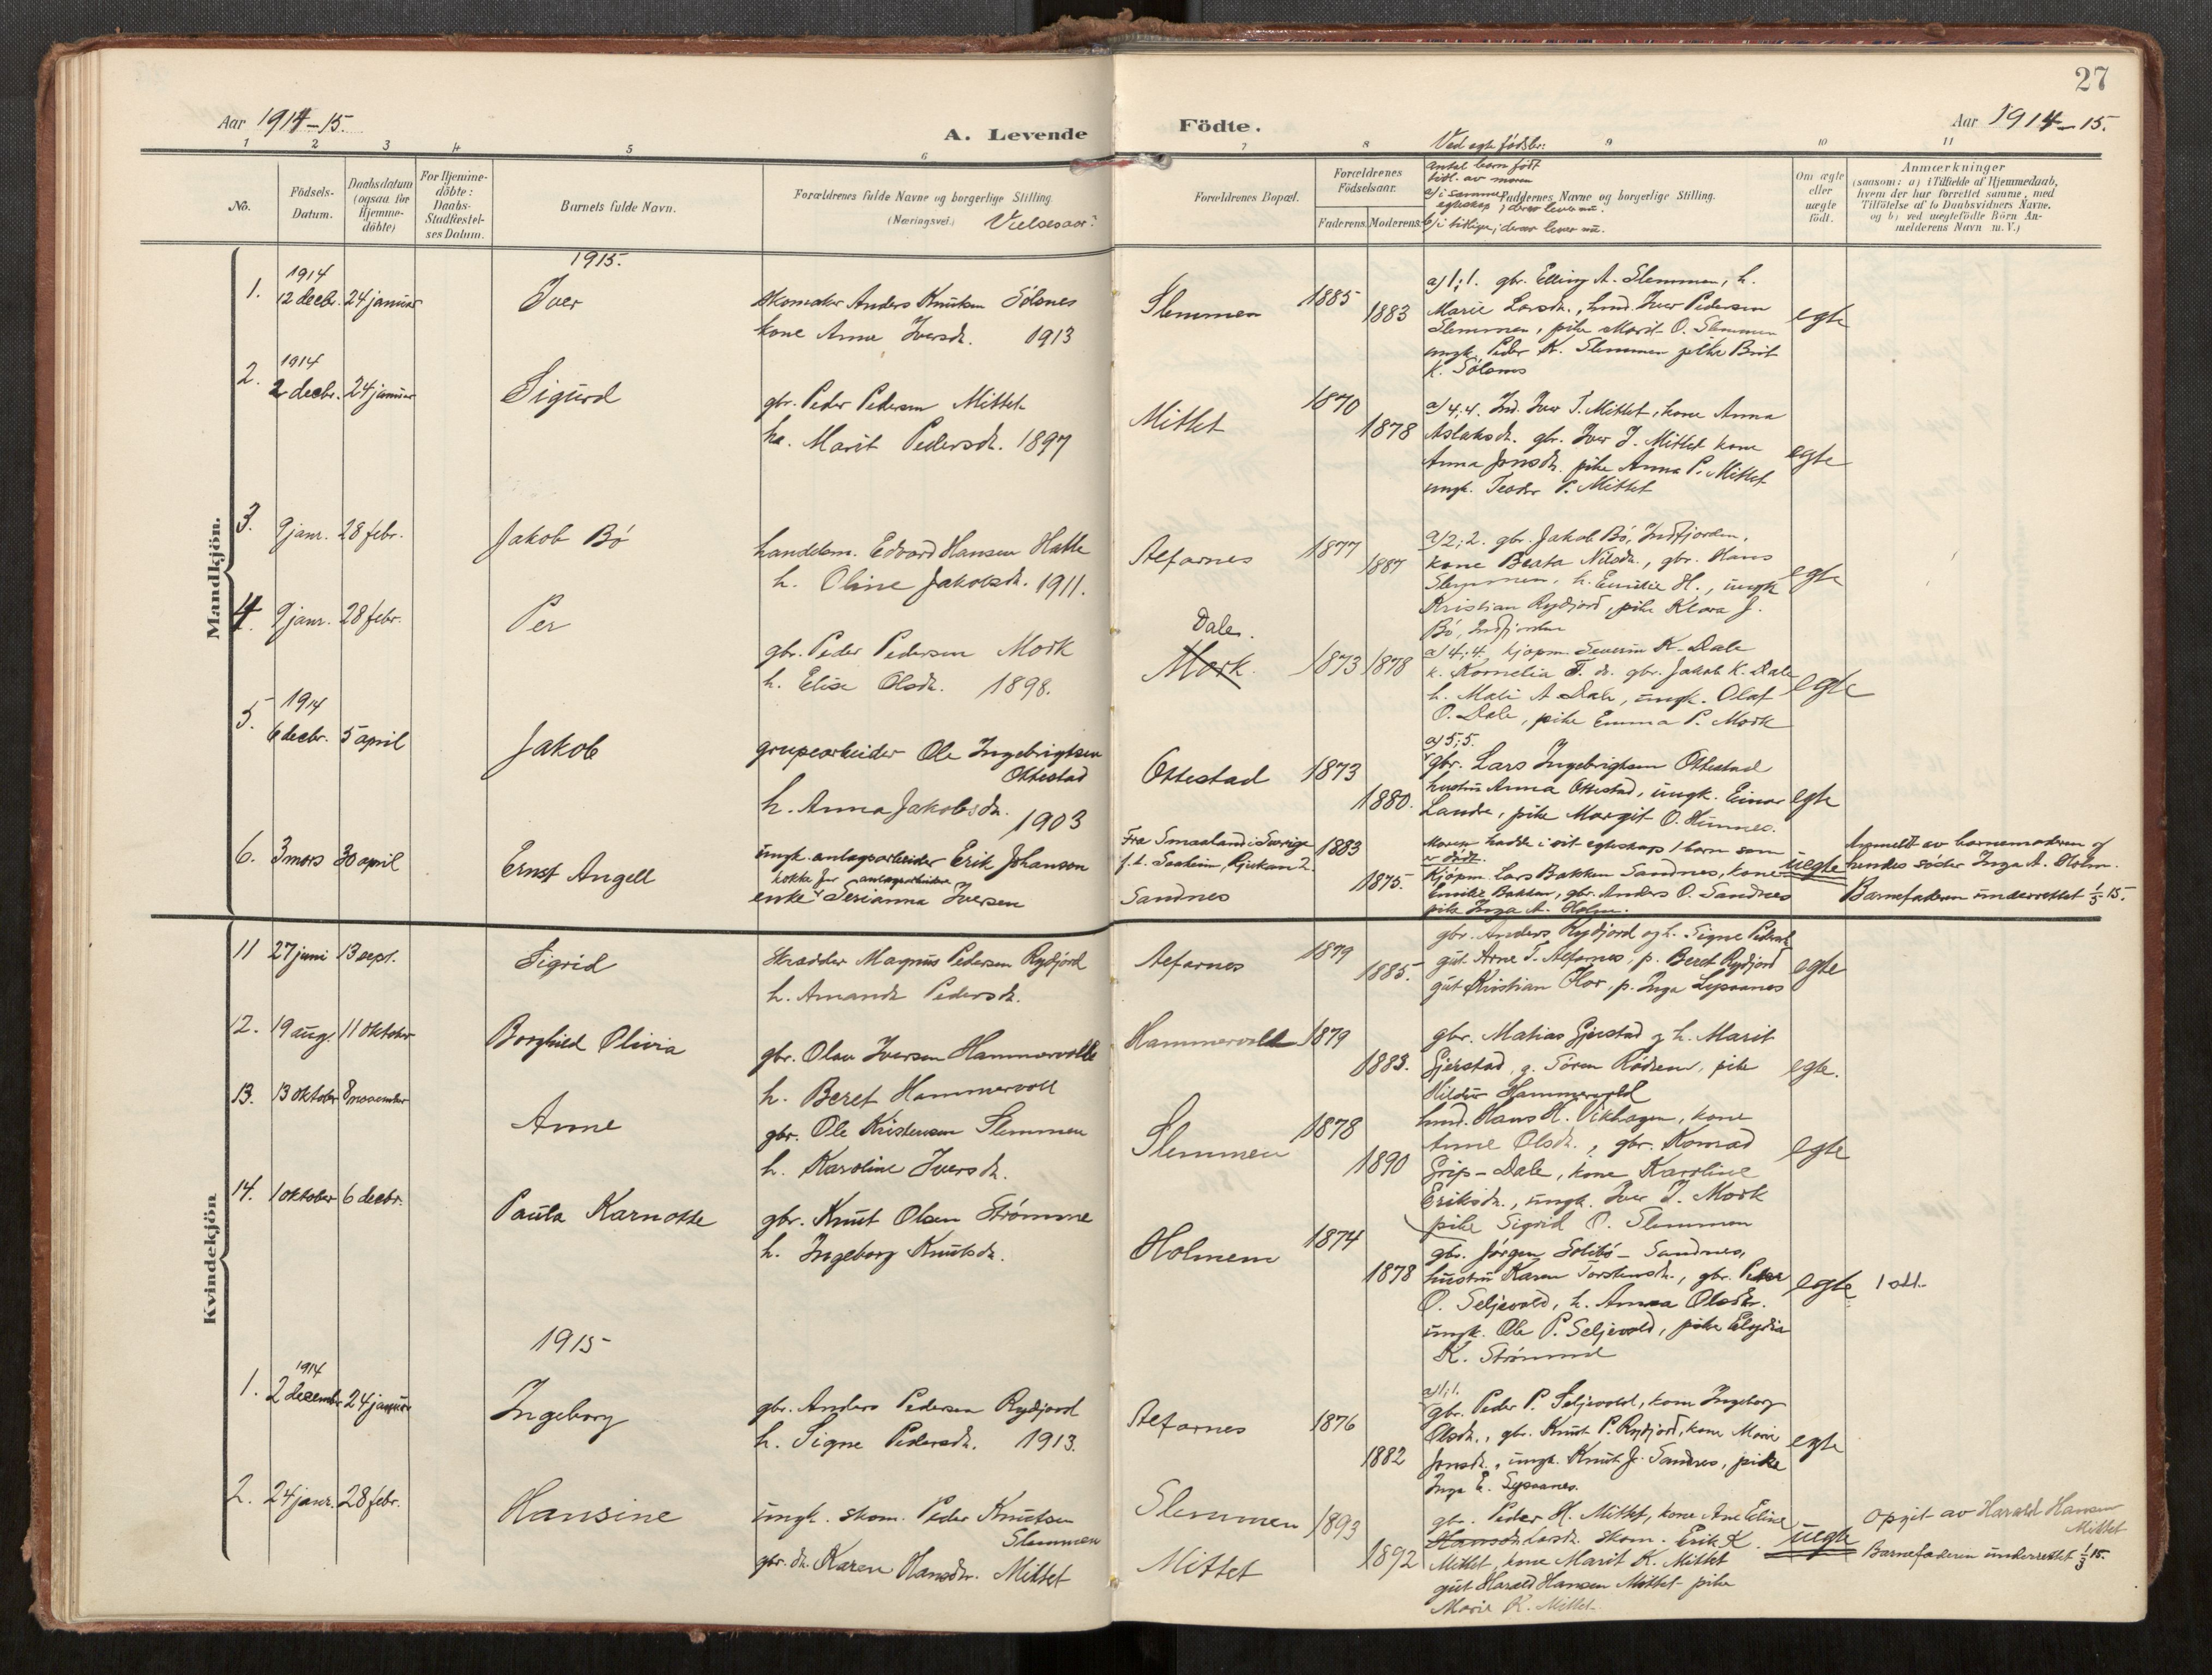 27
Aar 1914-15.
A. Levende
Födte.
Aar 1914-15.
1 2 3 4 5 6 7 8 9 10 11
No.
Födsels-
Datum.
Daabsdatum
(ogsaa for
Hjemme-
döbte)
For Hjemme-
döbte:
Daabs-
Stadfæstel-
ses Datum.
Barnets fulde Navn.
Forældrenes fulde Navne og borgerlige Stilling.
(Næringsvei.) Vielsesaar:
Forældrenes Bopæl.
Forældrenes
Födselsaar.
Faderens. Moderens.
Ved egte födsler:
antal barn födt
tidl. av moren
a) i samme
egteskap; derav lever nu.
b) i tidligere; derav lever nu.
Faddernes Navne og borgerlige Stilling.
Om ægte
eller
uægte
födt.
Anmærkninger
(saasom: a) i Tilfælde af Hjemmedaab,
hvem der har forrettet samme, med
Tilföielse af to Daabsvidners Navne.
og b) ved uægtefödte Börn An-
melderens Navn m. V.)
Mandkjön.
1915.
1. 1914
12 decbr. 24 januar
Iver
skomaker Anders Knutsen Sólsnes
kone Anne Iversdr. 1913
Slemmen
1885
1883
a) 1; 1. gbr. Elling A. Slemmen, h.
Marie Larsdr., hmd. Iver Pedersen
Slemmen, pike Marit O. Slemmen
ungk. Peder K. Slemmen pike Brit
K. Sólsnes
egte
2. 1914
2 decbr. 24 januar
Sigurd
gbr. Peder Pedersen Mittet
h. Marit Pedersdr. 1897
Mittet
1870
1878
a) 4; 4. Ind. Iver T. Mittet, kone Anna
Aslaksdr. gbr. Iver J. Mittet kone
Anna Jonsdr. pike Anna P. Mittet
ungk. Teodor P. Mittet
egte
3. 9 janr. 28 febr.
Jakob Bö
handelsm. Edvard Hansen Hatle
h. Oline Jakobsdr. 1911.
Alfarnes
1877
1887
a) 2; 2. gbr. Jakob Bö, Indfjorden,
kone Beata Nilsdr., gbr. Hans
Slemmen, h. Emilie H., ungk
Kristian Rydjord, pike Klara J.
Bö, Indfjorden
egte
4. 9 janr. 28 febr.
Per
gbr. Peder Pedersen Mork
h. Elise Olsdr. 1898.
Dale.
Mork.
1873 1878
a) 4; 4. kjöpm. Severin K. Dale
k. Kornelia T. dr. gbr. Jakob K. Dale
h. Mali A Dale, ungk. Olaf
O. Dale, pike Emma P. Mork
egte
5. 1914
6 decbr. 5 april
Jakob
grupearbeider Ole Ingebrigtsen
Ottestad
h. Anna Jakobsdr.
1903
Ottestad
1873
1880.
a) 5; 5.
gbr. Lars Ingebrigtsen Ottestad
hustru Anna Ottestad, ungk. Einar
Lande, pike Margit O. Hunnes.
egte
6. 3 mars 30 april
Ernst Angell
ungk. anlagsarbeider Erik Johanson
kokke for anlagsarbeidere
enke Serianna Iversen
Fra Smaaland i Sverige
f. t. Saaheim, Rjukan 2.
Sandnes
1883
1875.
Moren hadde i sit egteskap 1 barn som
er dödt.
Kjöpm. Lars Bakken Sandnes, kone
Emilie Bakken, gbr. Anders O. Sandnes
pike Inga A. Holm.
uegte
Anmeldt av barnemoderen og
hendes söster Inga A. Holm.
Barnefaderen underrettet 1/5 15.
Kvindekjön
11 27 juni 13 sept.
Sigrid
Skradder Magnus Pedersen Rydjord
h. Amanda Pedersdr.
Alfarnes
1879
1885.
gbr. Anders Rydjord og h. Signe Pedersdr
gut Arne T. Alfarnes, p. Beret Rydjord
gut Kristian Hov, p. Inga Lypsanes
egte
12. 19 aug. 11 oktober
Borghild Olivia
gbr. Olav Iversen Hammervoll
h. Beret Hammervoll
Hammervoll
1879
1883.
gbr. Matias Gjerstad og h. Marit
Gjerstad, g. Sören Rödven, pike
Hildur Hammervold
egte.
13. 13 oktober 8 november
Anne
gbr. Ole Kristensen Slemmen
h. Karoline Iversdr.
Slemmen
1878
1890
hmd. Hans H. Vikhagen, kone
Anne Olsdr., gbr. Konrad
Grip-Dale, kone Karoline
Eriksdr., ungk. Iver J. Mork
pike Sigrid O. Slemmen
egte
14. 1 oktober 6 decbr.
Paula Karnotte
gbr. Knut Olsen Strømme
h. Ingeborg Knutsdr.
Holmem
1874
1878
gbr. Jörgen Solibö - Sandnes,
hustru Karen Torstensdr., gbr. Peder
O. Seljevold, h. Anna Olsdtr.
ungk. Ole P. Seljevold, pike Elydia
K. Strømme
egte
1 att.
1915
1. 1914
2 december 24 januar
Ingeborg
gbr. Anders Pedersen Rydjord
h. Signe Pedersdr. 1913.
Alfarnes
1876
1882
a) 1; 1.
gbr. Peder P. Seljevold, kone Ingeborg
Olsdr., gbr. Knut P. Rydjord, kone Marie
Jonsdr., ungk. Knut J. Sandnes, pike
Inga E. Lypsanes.
egte
2. 24 janr. 28 febr.
Hansine
ungk. skom. Peder Knutsen
Slemmen
gbr. dr. Karen Hansdtr. Mittet
Slemmen
Mittet
1893
1892
gbr. Peder H. Mittet, kone Ane Eline
Hansdr Larsdr. skom. Erik K.
Mittet, kone Marit K. Mittet
gut Harald Hansen Mittet pike
Marie K. Mittet.
uegte
Opgit av Harald Hansen
Mittet
Barnefaderen underrettet 1/3 15.